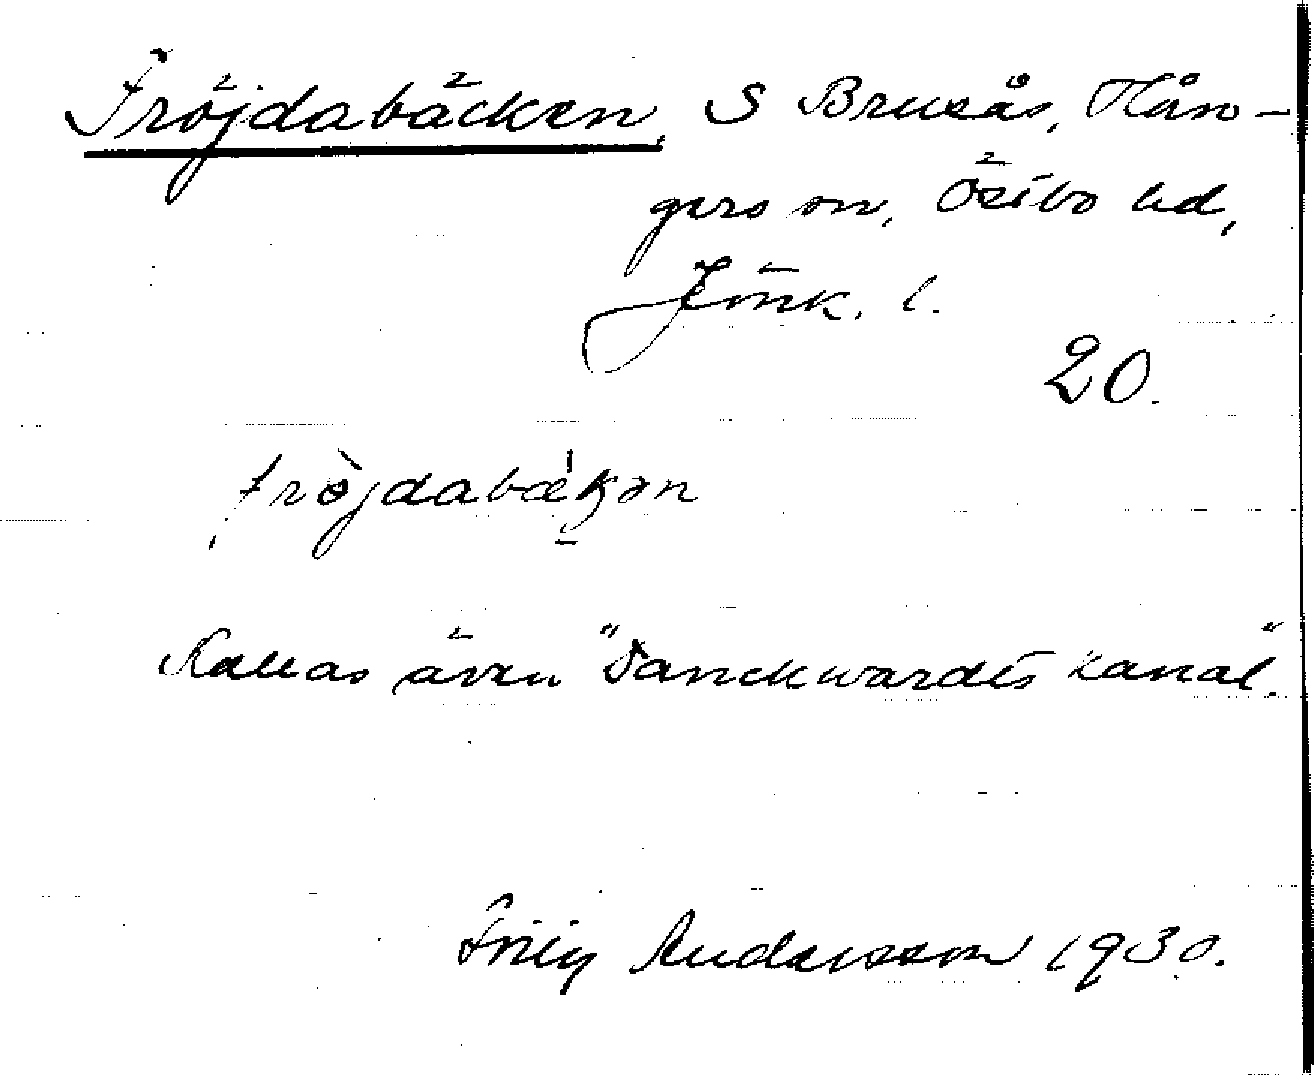 Fröjdabäcken, S Brusås, Hån-
gers sn, Östbo hd,
Jönk. l.
20.
fröjdabækən
Kallas även "Danckwardts kanal".
Andersson 1930.